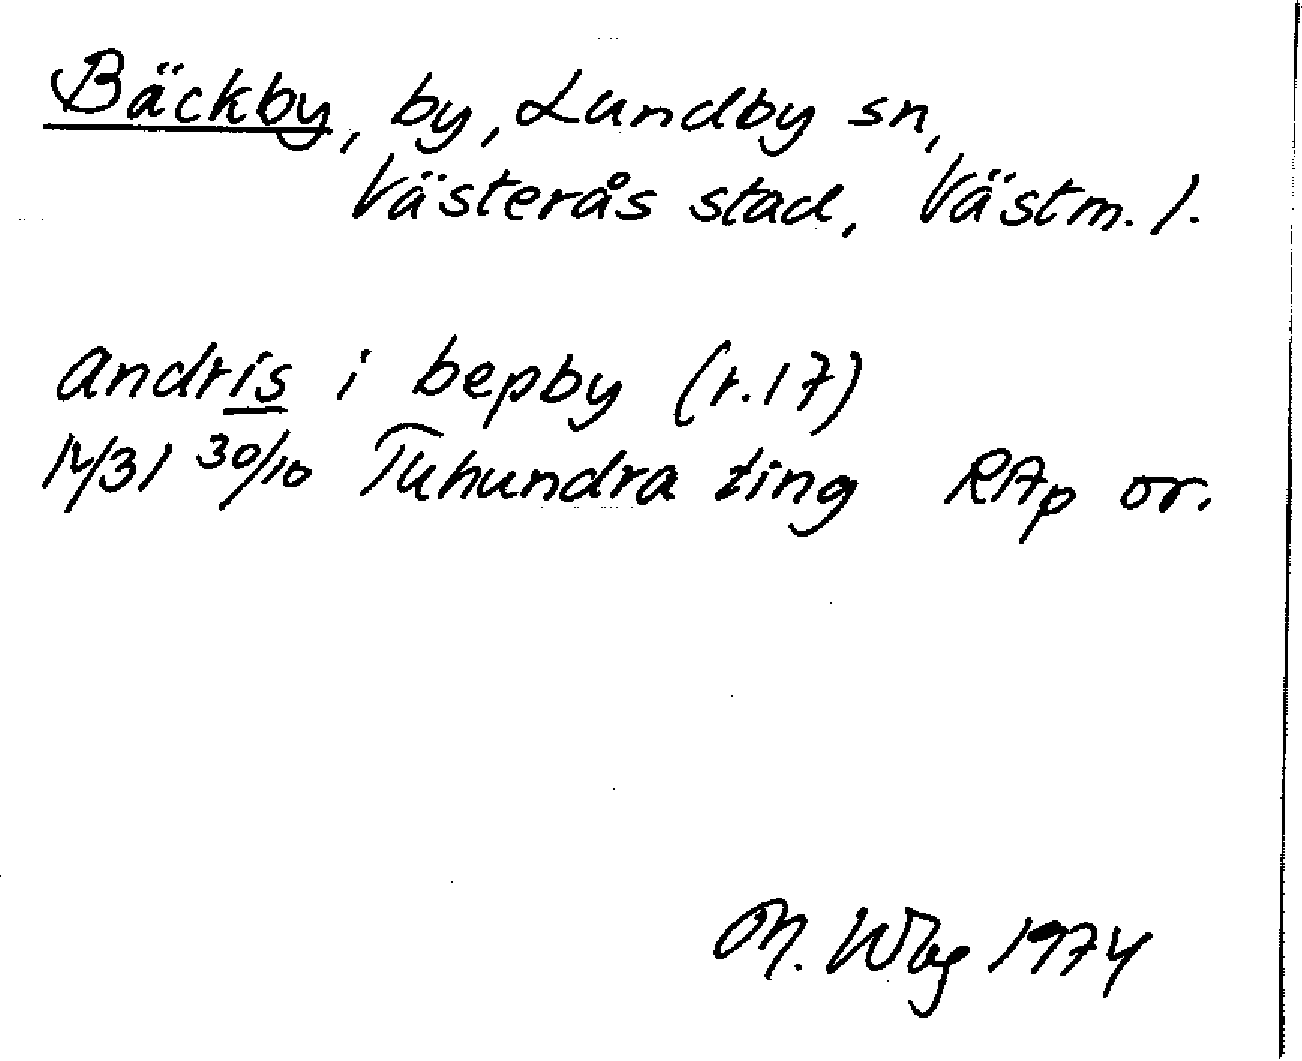 Bäckby, by, Lundby sn,
Västerås stad, Västm. l.
andris i bepby (r. 17)
1431 30/10 Tuhundra ting RAp or.
M. Wbg 1974